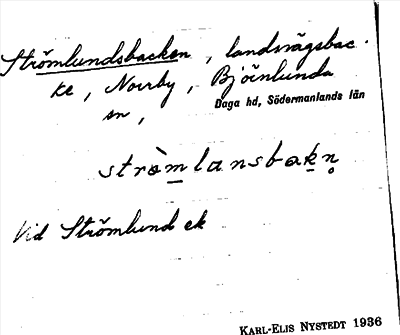 Strömlundsbacken, landsvägsbac-
ke, Norrby, Björnlunda
sn,
Daga hd, Södermanlands län
strò̀m̲lansbak̲n̥
Vid Strömlund ek
KARL-ELIS NYSTEDT 1936